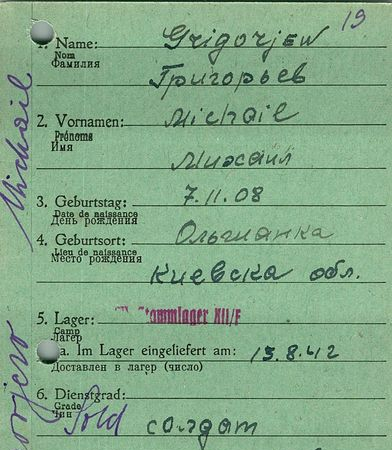 19
1. Name: Grigorjew
Nom
Фамилия Григорьев
2. Vornamen: Michail
Prénoms
Имя
Михаил
3. Geburtstag: 7.11.08
Date de naissance
День рождения
4. Geburtsort: Ольшанка
Lieu de naissance
Место рождения Киевска обл.
5. Lager: Stammlager XII/F
Camp
Лагерь
a. Im Lager eingeliefert am: 13.8.42
Доставлен в лагер (число)
6. Dienstgrad:
Grade
Чин Sold солдат
Michail